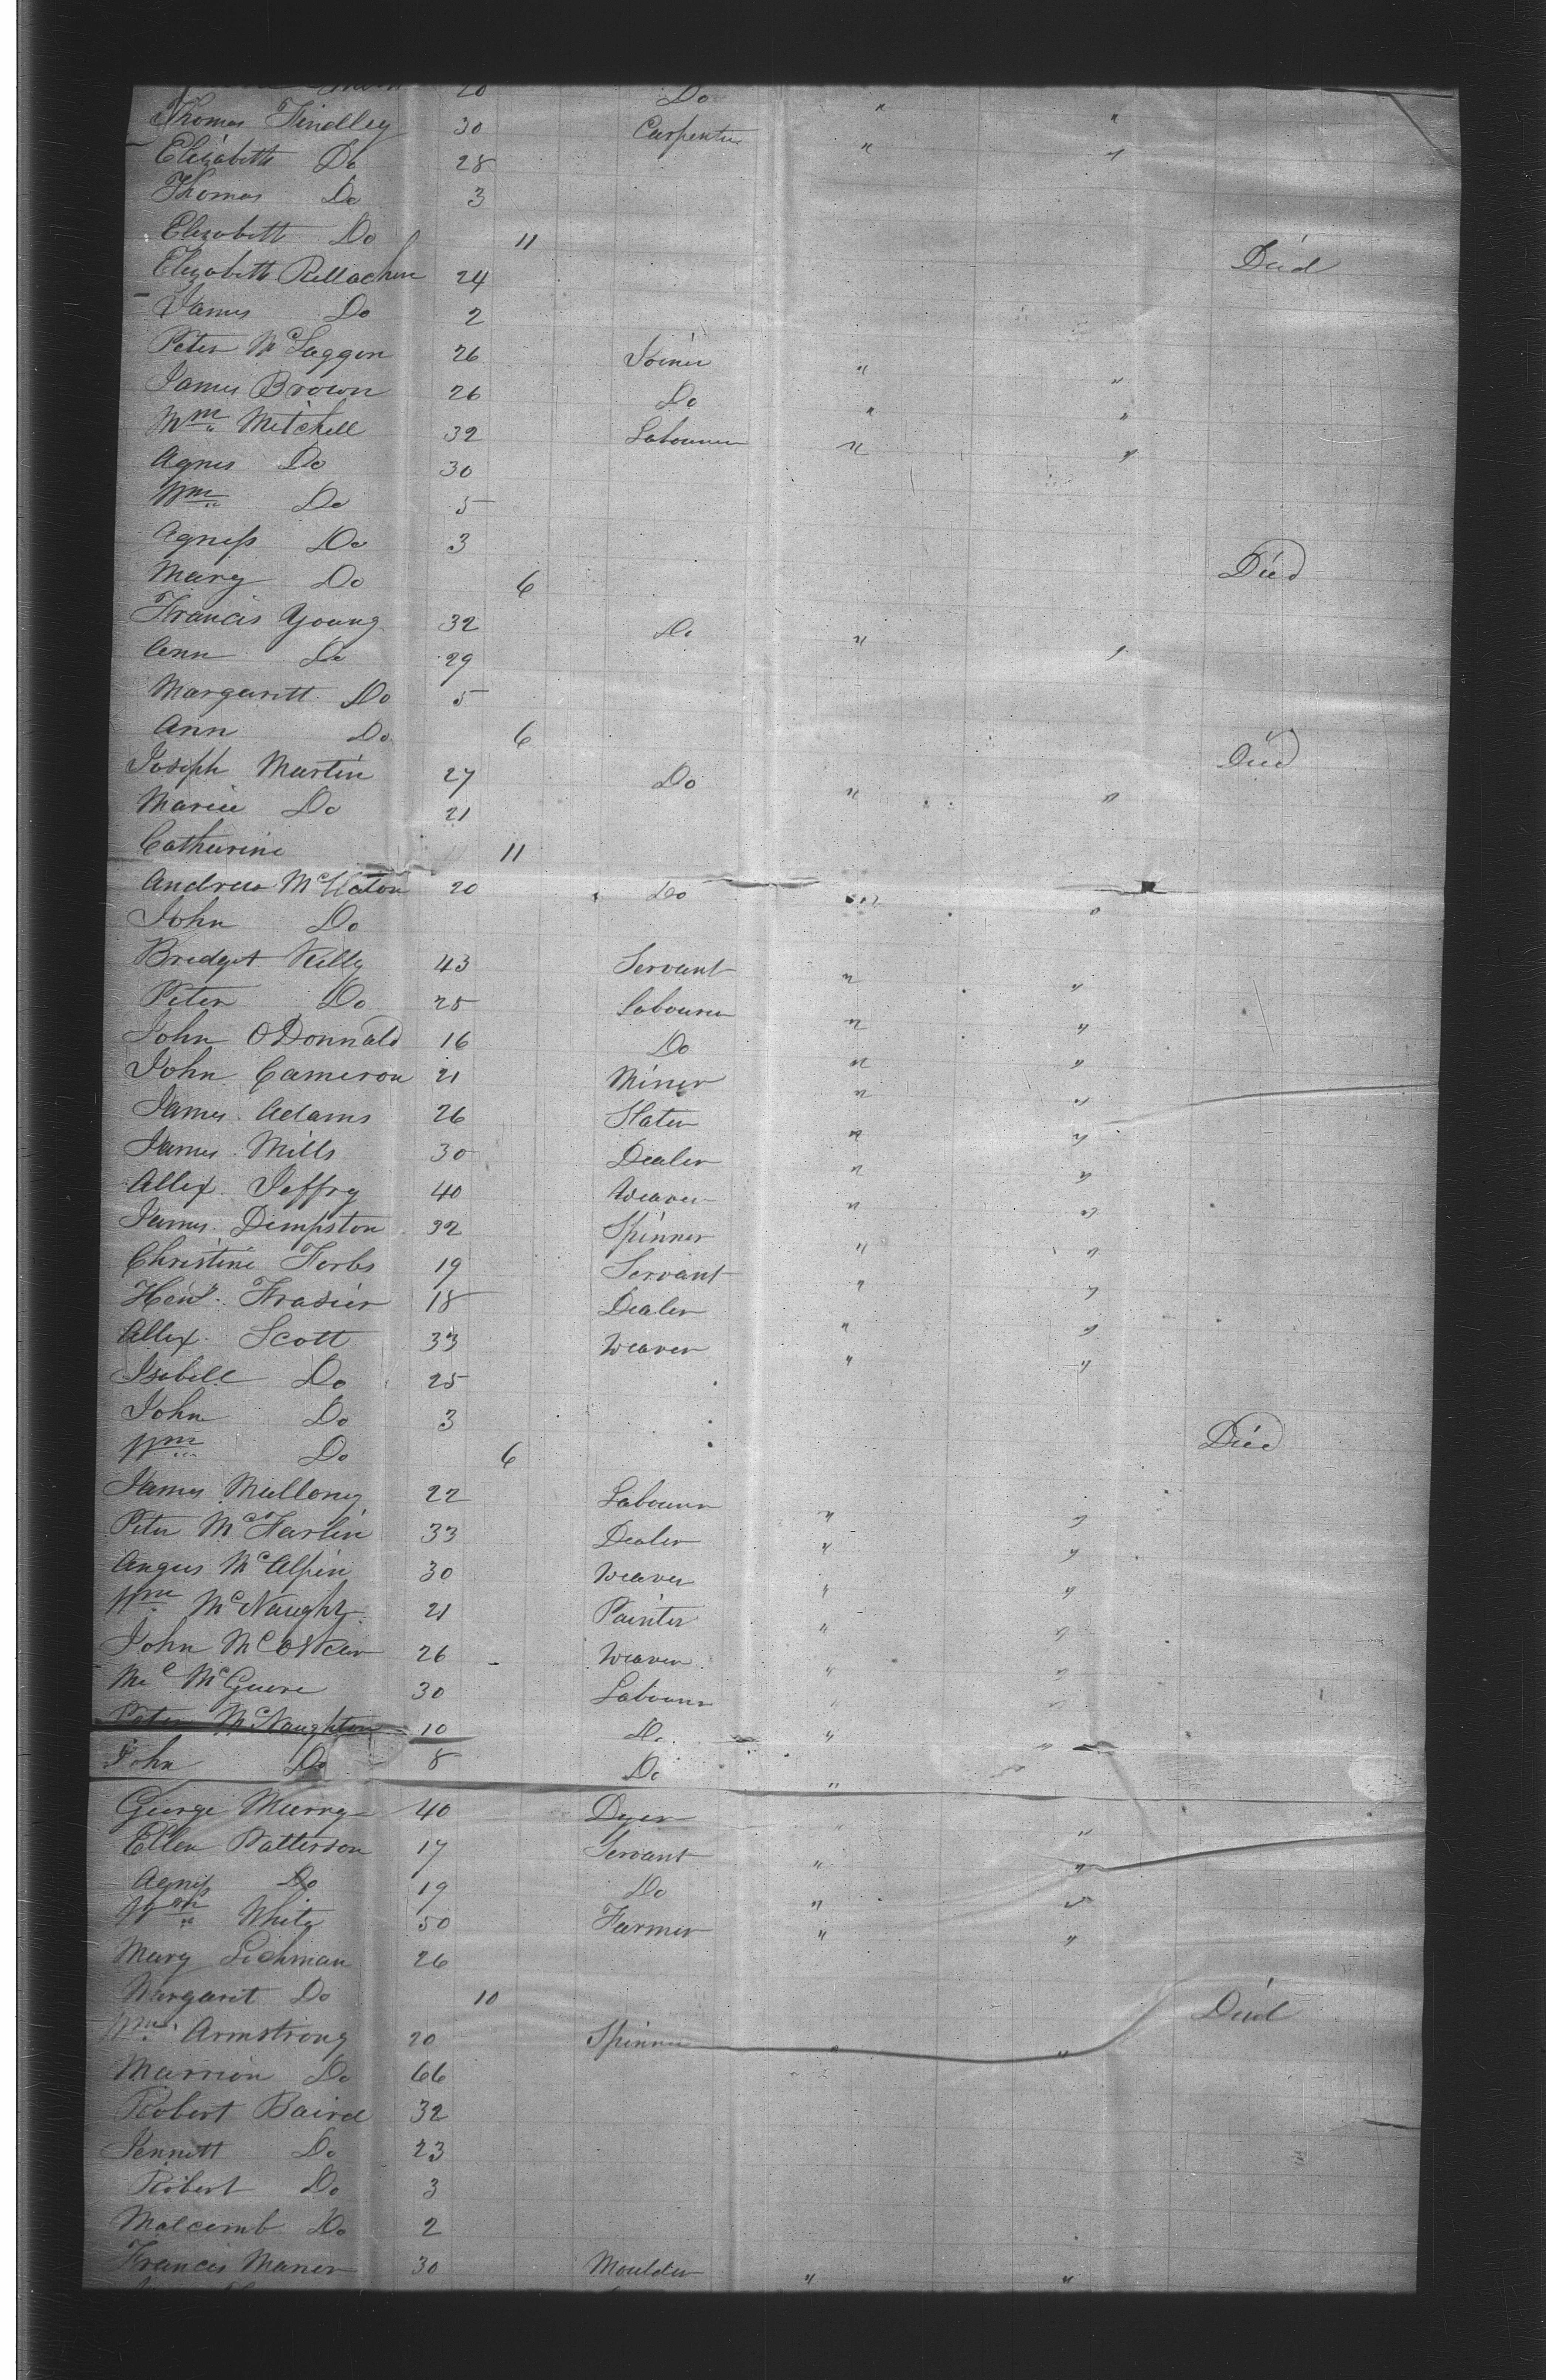 20 Do " "
Thomas Findlley 30 Carpenter " "
Elizabeth Do 28
Thomas Do 3
Elizabeth Do 11 Died
Elizabeth 24
James Do 2
Peter McLaggen 26 Joiner " "
James Brown 26 Do " "
Wm Mitchell 32 Labourer " "
Agnes Do 30
Wm Do 5
Agness Do 3
Mary Do 6 Died
Francis Young 32 Do " "
Ann Do 29
Margaritt Do 5
Ann Do 6 Died
Joseph Martin 27 Do " "
Do 21
Catharine 11
Andrew 20 Do " "
John Do
Bridget Kelly 43 Servant " "
Peter Do 25 Labourer " "
John ODonnald 16 Do " "
John Cameron 21 Miner " "
James Adams 26 Slater " "
James Mills 30 Dealer " "
Allex Jeffry 40 Weaver " "
James Dempston 32 Spinner " "
Christine Forbs 19 Servant " "
Heny Frasier 18 Dealer " "
Allex Scott 33 Weaver " "
Isabell Do 25
John Do 3
Wm Do 6 Died
James Mullony 22 Labourer " "
Peter McFarlin 33 Dealer " "
Angus McAlpin 30 Weaver " "
Wm McNaught 21 Painter " "
John 26 Weaver " "
McGuere 30 Labourer " "
Peter McNaughton 10 Do " "
John Do 8 Do "
George Murry 40 Dyer " "
Ellen Patterson 17 Servant " "
Agness Do 19 Do " "
Wm White 50 Farmer " "
Mary Lichman 26
Margaret Do 10 Died
Wm Armstrong 20 Spinner " "
Marrion Do 66
Robert Baird 32
Jennett Do 23
Robert Do 3
Malcomb Do 2
Francis Maner 30 Moulder " "